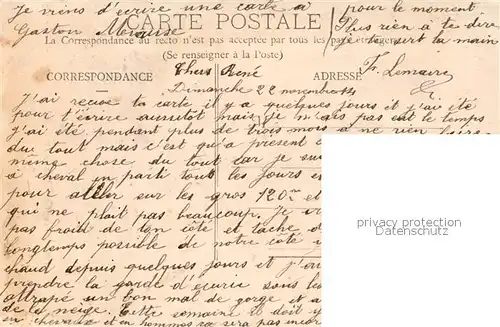 Je viens d'écrire une carte à pour le moment
Gaston Plus rien à te dire
CARTE POSTALE
je te sert la main
La Correspondance au recto n'est pas acceptée par tous les pays étrangers
(Se renseigner à la Poste)
F. Lemaire
CORRESPONDANCE
ADRESSE
Cher René
Dimanche 22 novembre
J'ai recu ta carte il y a quelques jours et j'ai été
pour t'écrire aussitôt mais je n'ai pas eut le temps
j'ai été pendant plus de trois mois a ne rien faire
du tout mais c'est qu'a présent c
même chose du tout car je sui
à cheval en parti tout les jours e
pour aller sur les gros 120 et
qui ne plait pas beaucoup. Je
pas froid de ton côté et tâche d
longtemps posible de notre côte
chaud depuis quelques jours et j'
prendre la garde d'écurie sous le
attrapé un bon mal de gorge et a
de la neige. Cette semaine il doit y
en chevaux et en hommes sa sera pas
privacy protection
Datenschutz